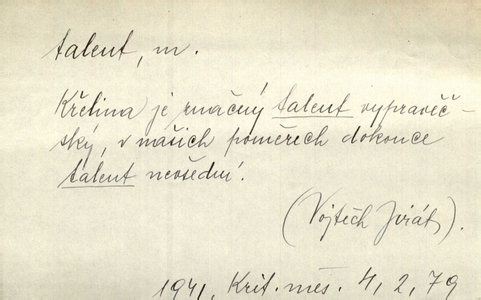 talent, m.
Křelina je značný talent vypravěč-
ský, v našich poměrech dokonce
talent nevšední.
(Vojtěch Jirát).
1941, Krit. měs. 4, 2, 79